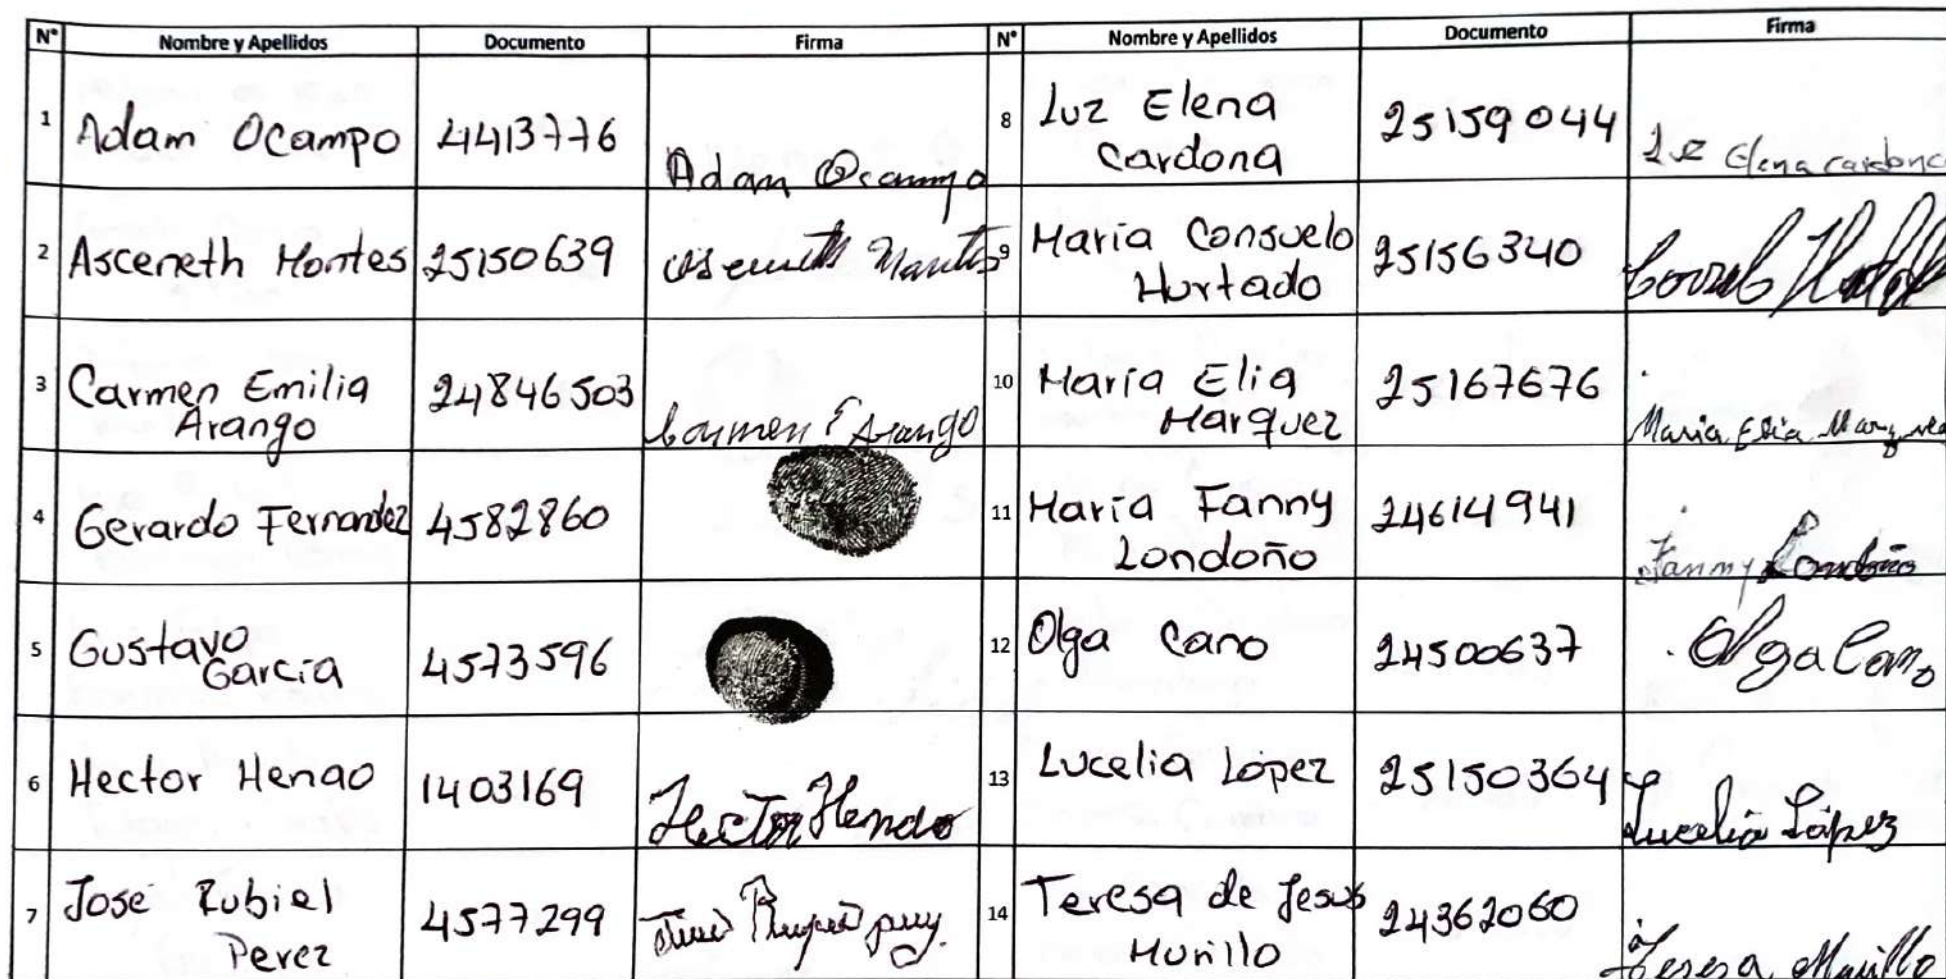 N° Nombre y Apellidos Documento Firma N° Nombre y Apellidos Documento Firma
1 Adam Ocampo 4413776 Adam Ocampo
2 Asceneth Montes 25150639
3 Carmen Emilia Arango 24846503 Carmen E Arango
4 Gerardo Fernandez 4582860
5 Gustavo Garcia 4573596
6 Hector Henao 1403169 Hector Henao
7 José Rubiel Perez 4577299
8 Luz Elena Cardona 25159044 Elena Cardona
9 Maria Consuelo Hurtado 25156340
10 Maria Elia Marquez 25167676 Maria Elia Marquez
11 Maria Fanny Londoño 24614941 Fanny Londoño
12 Olga Cano 24500637 Olga Cano
13 Lucelia López 25150364 Lucelia López
14 Teresa de Jesus Murillo 24362060 Teresa Murillo